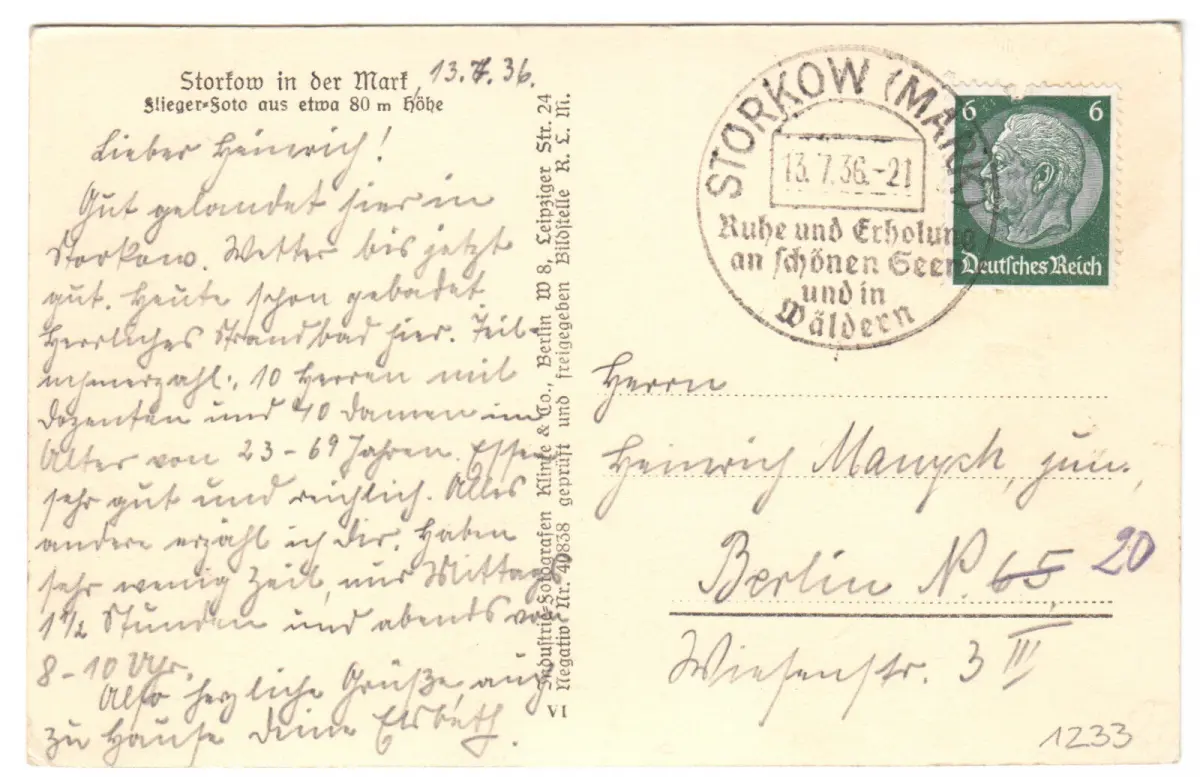 Storkow in der Mark, 13.7.36.
Flieger=Foto aus etwa 80 m Höhe
Lieber Heinrich!
Gut gelandet hier in
Storkow. Wetter bis jetzt
gut. Heute schon gebadet.
Herrliches Strandbad hier. Teil-
nehmerzahl: 10 Herren mit
Dozenten und 40 Damen im
Alter von 23-69 Jahren. Essen
sehr gut und reichlich. Alles
andere erzähl ich dir. Haben
sehr wenig Zeit, nur Mittags
1½ Stunden und abends von
8-10 Uhr.
Also herzliche Grüße auch
zu Hause deine Elsbeth.
Industrie=Fotografen Klinke & Co., Berlin W 8, Leipziger Str. 24
Negativ Nr. 40838 geprüft und freigegeben Bildstelle R. L. M.
VI
STORKOW (MARK)
13.7.36.-21
Ruhe und Erholung
an schönen Seen
und in
Wäldern
6 6
Deutsches Reich
Herrn
Heinrich Manych, jun.,
Berlin N. 65, 20
Wiesenstr. 3 III
1233